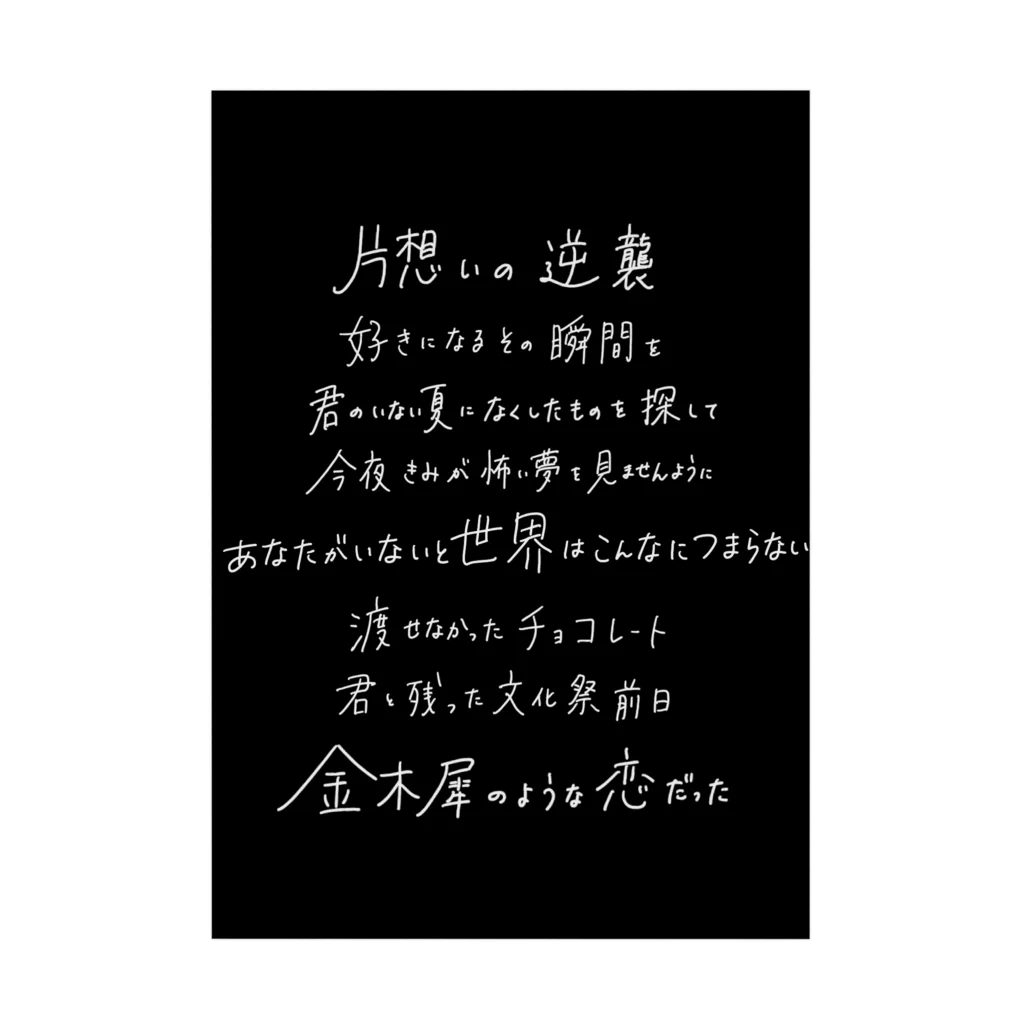 片想いの逆襲
好きになるその瞬間を
君のいない夏になくしたものを探して
今夜きみが怖い夢を見ませんように
あなたがいないと世界はこんなにつまらない
渡せなかったチョコレート
君と残った文化祭前日
金木犀のような恋だった